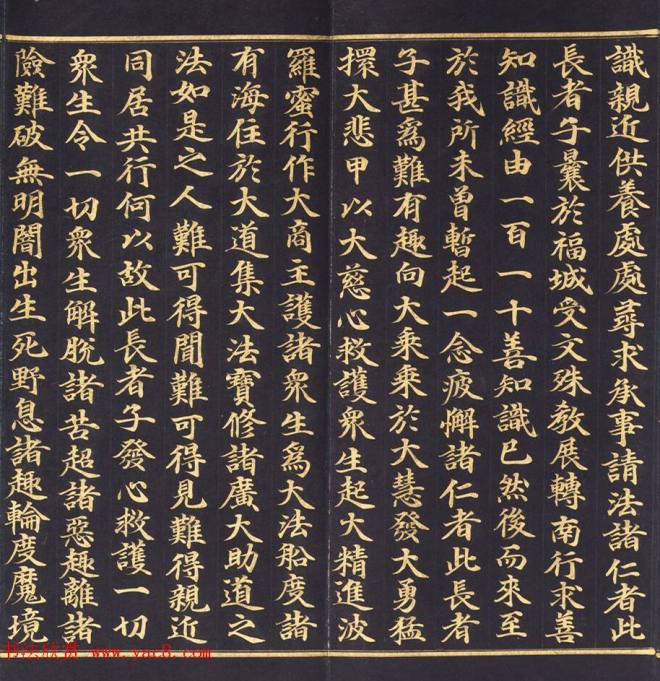 識親近供養處處尋求承事請法諸仁者此
長者子曩於福城受文殊教展轉南行求善
知識經由一百一十善知識已然後而來至
於我所未曾暫起一念疲懈諸仁者此長者
子甚為難有趣向大乘乘於大慧發大勇猛
擐大悲甲以大慈心救護衆生起大精進波
羅蜜行作大商主護諸衆生為大法船度諸
有海住於大道集大法寶修諸廣大助道之
法如是之人難可得聞難可得見難得親近
同居共行何以故此長者子發心救護一切
衆生令一切衆生解脫諸苦超諸惡趣離諸
險難破無明闇出生死野息諸趣輪度魔境
书法欣赏 www.yac8.com